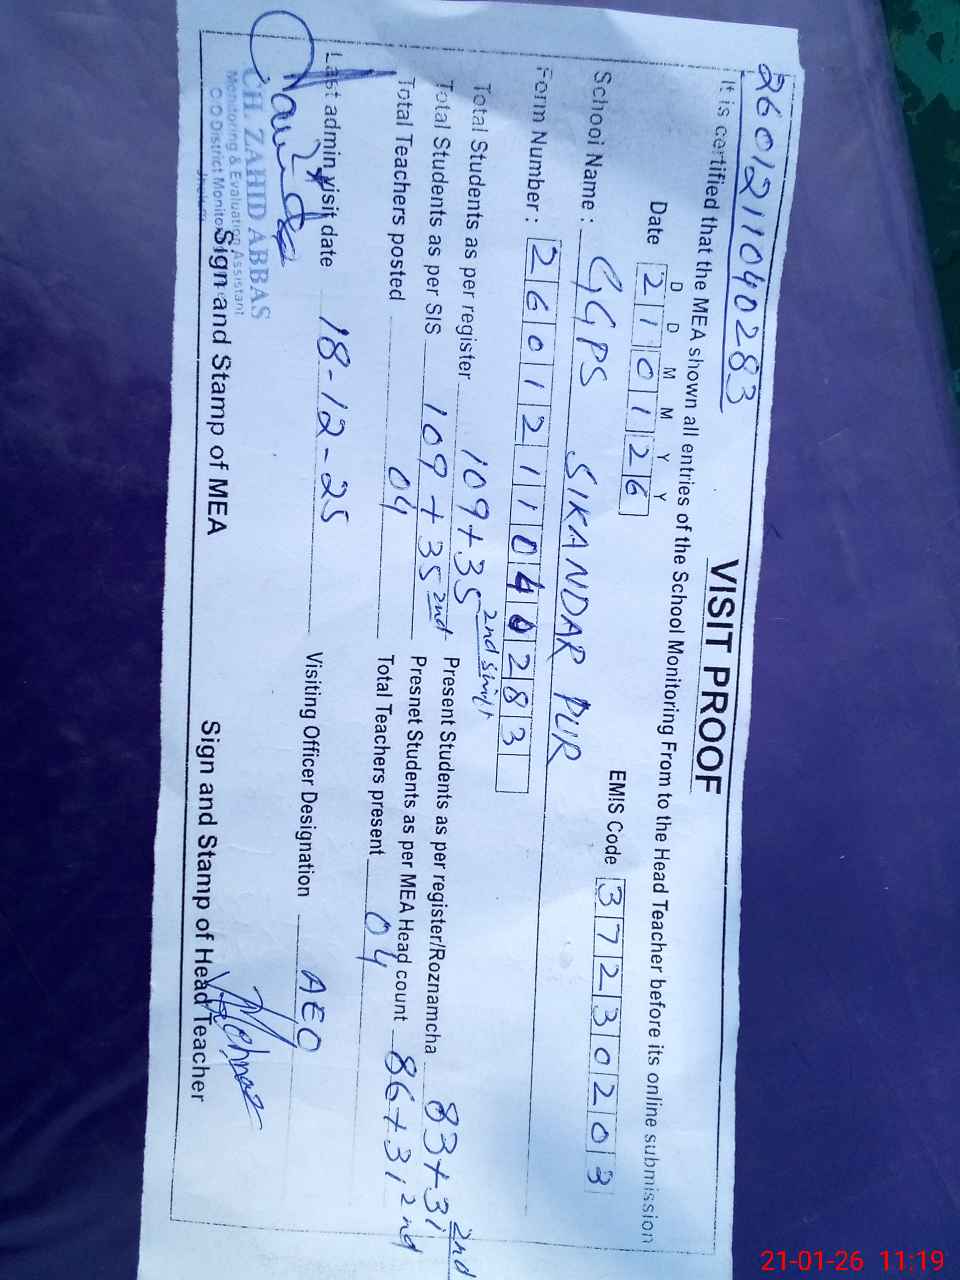 2601211040283
VISIT PROOF
It is certified that the MEA shown all entries of the School Monitoring From to the Head Teacher before its online submission
D D M M Y Y
Date 2 1 0 1 2 6
EMIS Code 3 7 2 3 0 2 0 3
School Name: GGPS SIKANDAR PUR
Form Number: 2 6 0 1 2 1 1 0 4 0 2 8 3
Total Students as per register 109+35 2nd shift Present Students as per register/Roznamcha 83+31 2nd
Total Students as per SIS 109+35 2nd Presnet Students as per MEA Head count 86+31 2nd
Total Teachers posted 04 Total Teachers present 04
Last admin visit date 18-12-25 Visiting Officer Designation AEO
CH. ZAHID ABBAS
Monitoring & Evaluation Assistant
O/O District Monito
Sign and Stamp of MEA Sign and Stamp of Head Teacher
21-01-26 11:19